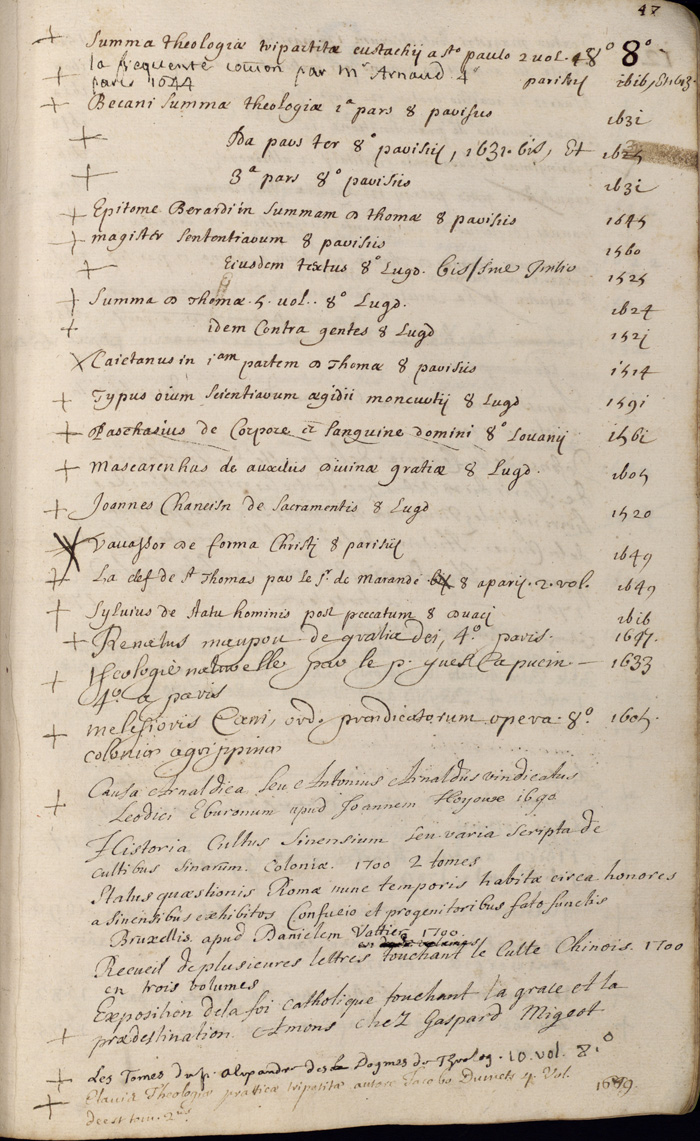 47
+ Summa theologiæ tripartitæ eustachij a sto paulo 2 vol. 8° 8°
+ la frequente comon par mr Arnaud 4° parisijs 1616, et 1613.
paris 1644
+ Becani Summæ theologiæ 1a pars 8 parisiis 1631
+ IIa pars ter 8° parisijs, 1631. bis, Et 1625
+ 3a pars 8° parisiis 1631
+ Epitome Berardi in Summam D thomæ 8 parisiis 1645
+ magister Sententiarum 8 parisiis 1560
+ Eiusdem textus 8° Lugd. bis/sine Initio 1525
+ Summa D Thomæ. 5. vol. 8° Lugd. 1624
+ idem Contra gentes 8 Lugd 1521
+ Caietanus in 1am partem D Thomæ 8 parisiis 1514
+ Typus oium Scientiarum ægidii moncurtij 8 Lugd 1591
+ Paschasius de Corpore et Sanguine domini 8° Louanij 1561
+ Mascarenhas de auxiliis diuinæ gratiæ 8 Lugd. 1605
+ Joannes de Sacramentis 8 Lugd 1520
+ Vauassor de forma Christi 8 parisiis 1649
+ La clef de st Thomas par le Sr. de Marande 8 a paris. 2. vol. 1649
+ Syluius de statu hominis post peccatum 8 duaci 1616
+ Renatus maupou de gratia dei, 4.° paris. 1647.
+ Theologie naturelle par le p. yues Capucin — 1633
4° a paris
+ melchioris Cani, ord. prædicatorum opera. 8°. 1605.
coloniæ agrippinæ
+ Causa Arnaldica seu Antonius Arnaldus vindicatus
Leodici Eburonum apud Joannem Hoyoux 1690
Historia Cultus Sinensium seu varia scripta de
cultibus Sinarum. Coloniæ. 1700 2 tomes
Status quæstionis Romæ nunc temporis habitæ circa honores
a sinensibus exhibitos Confucio et progenitoribus fato functis
Bruxellis apud Danielem 1700.
Recueil de plusieures lettres touchant le Culte Chinois. 1700
en trois volumes
Exposition de la foi catholique touchant la grace et la
+ prædestination. A mons chez Gaspard Migeot
+ Les Tomes du p. alexandre des Dogmes de Theolog. 10. vol. 8.°
+ Clavis Theologiæ autore Jacobo 4. Vol. 1679.
deest tom. 2us